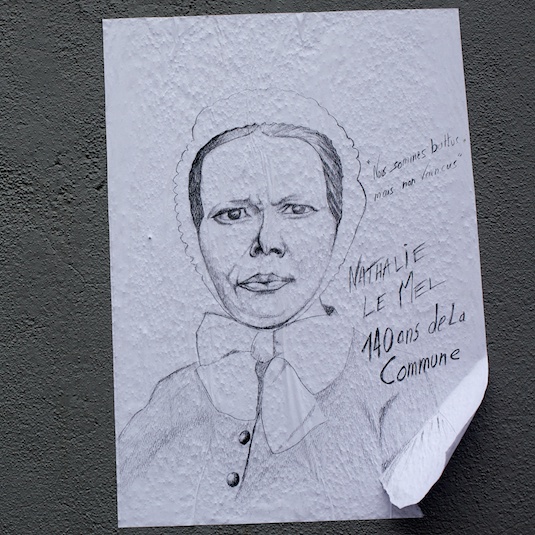 "Nous sommes battus,
mais non vaincus"
NATHALIE
LE MEL
140 ans de La
Commune